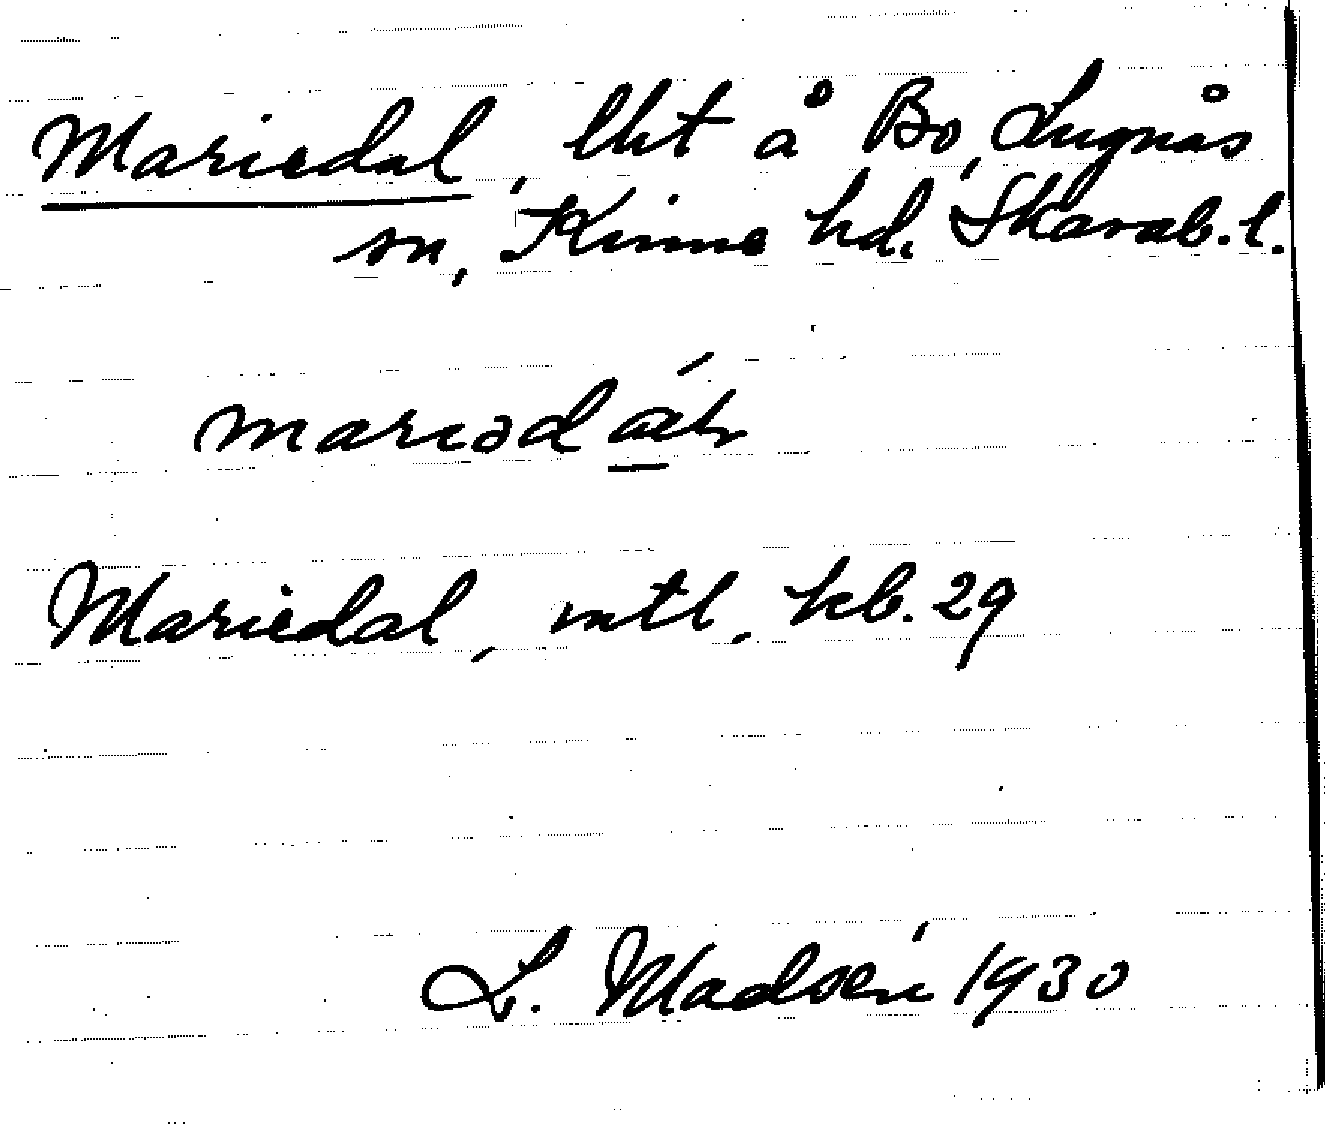 Mariedal, lht å Bo, Lugnås
sn, Kinne hd. Skarab. l.
Mariedal, mtl, kb. 29
L. Madsén 1930